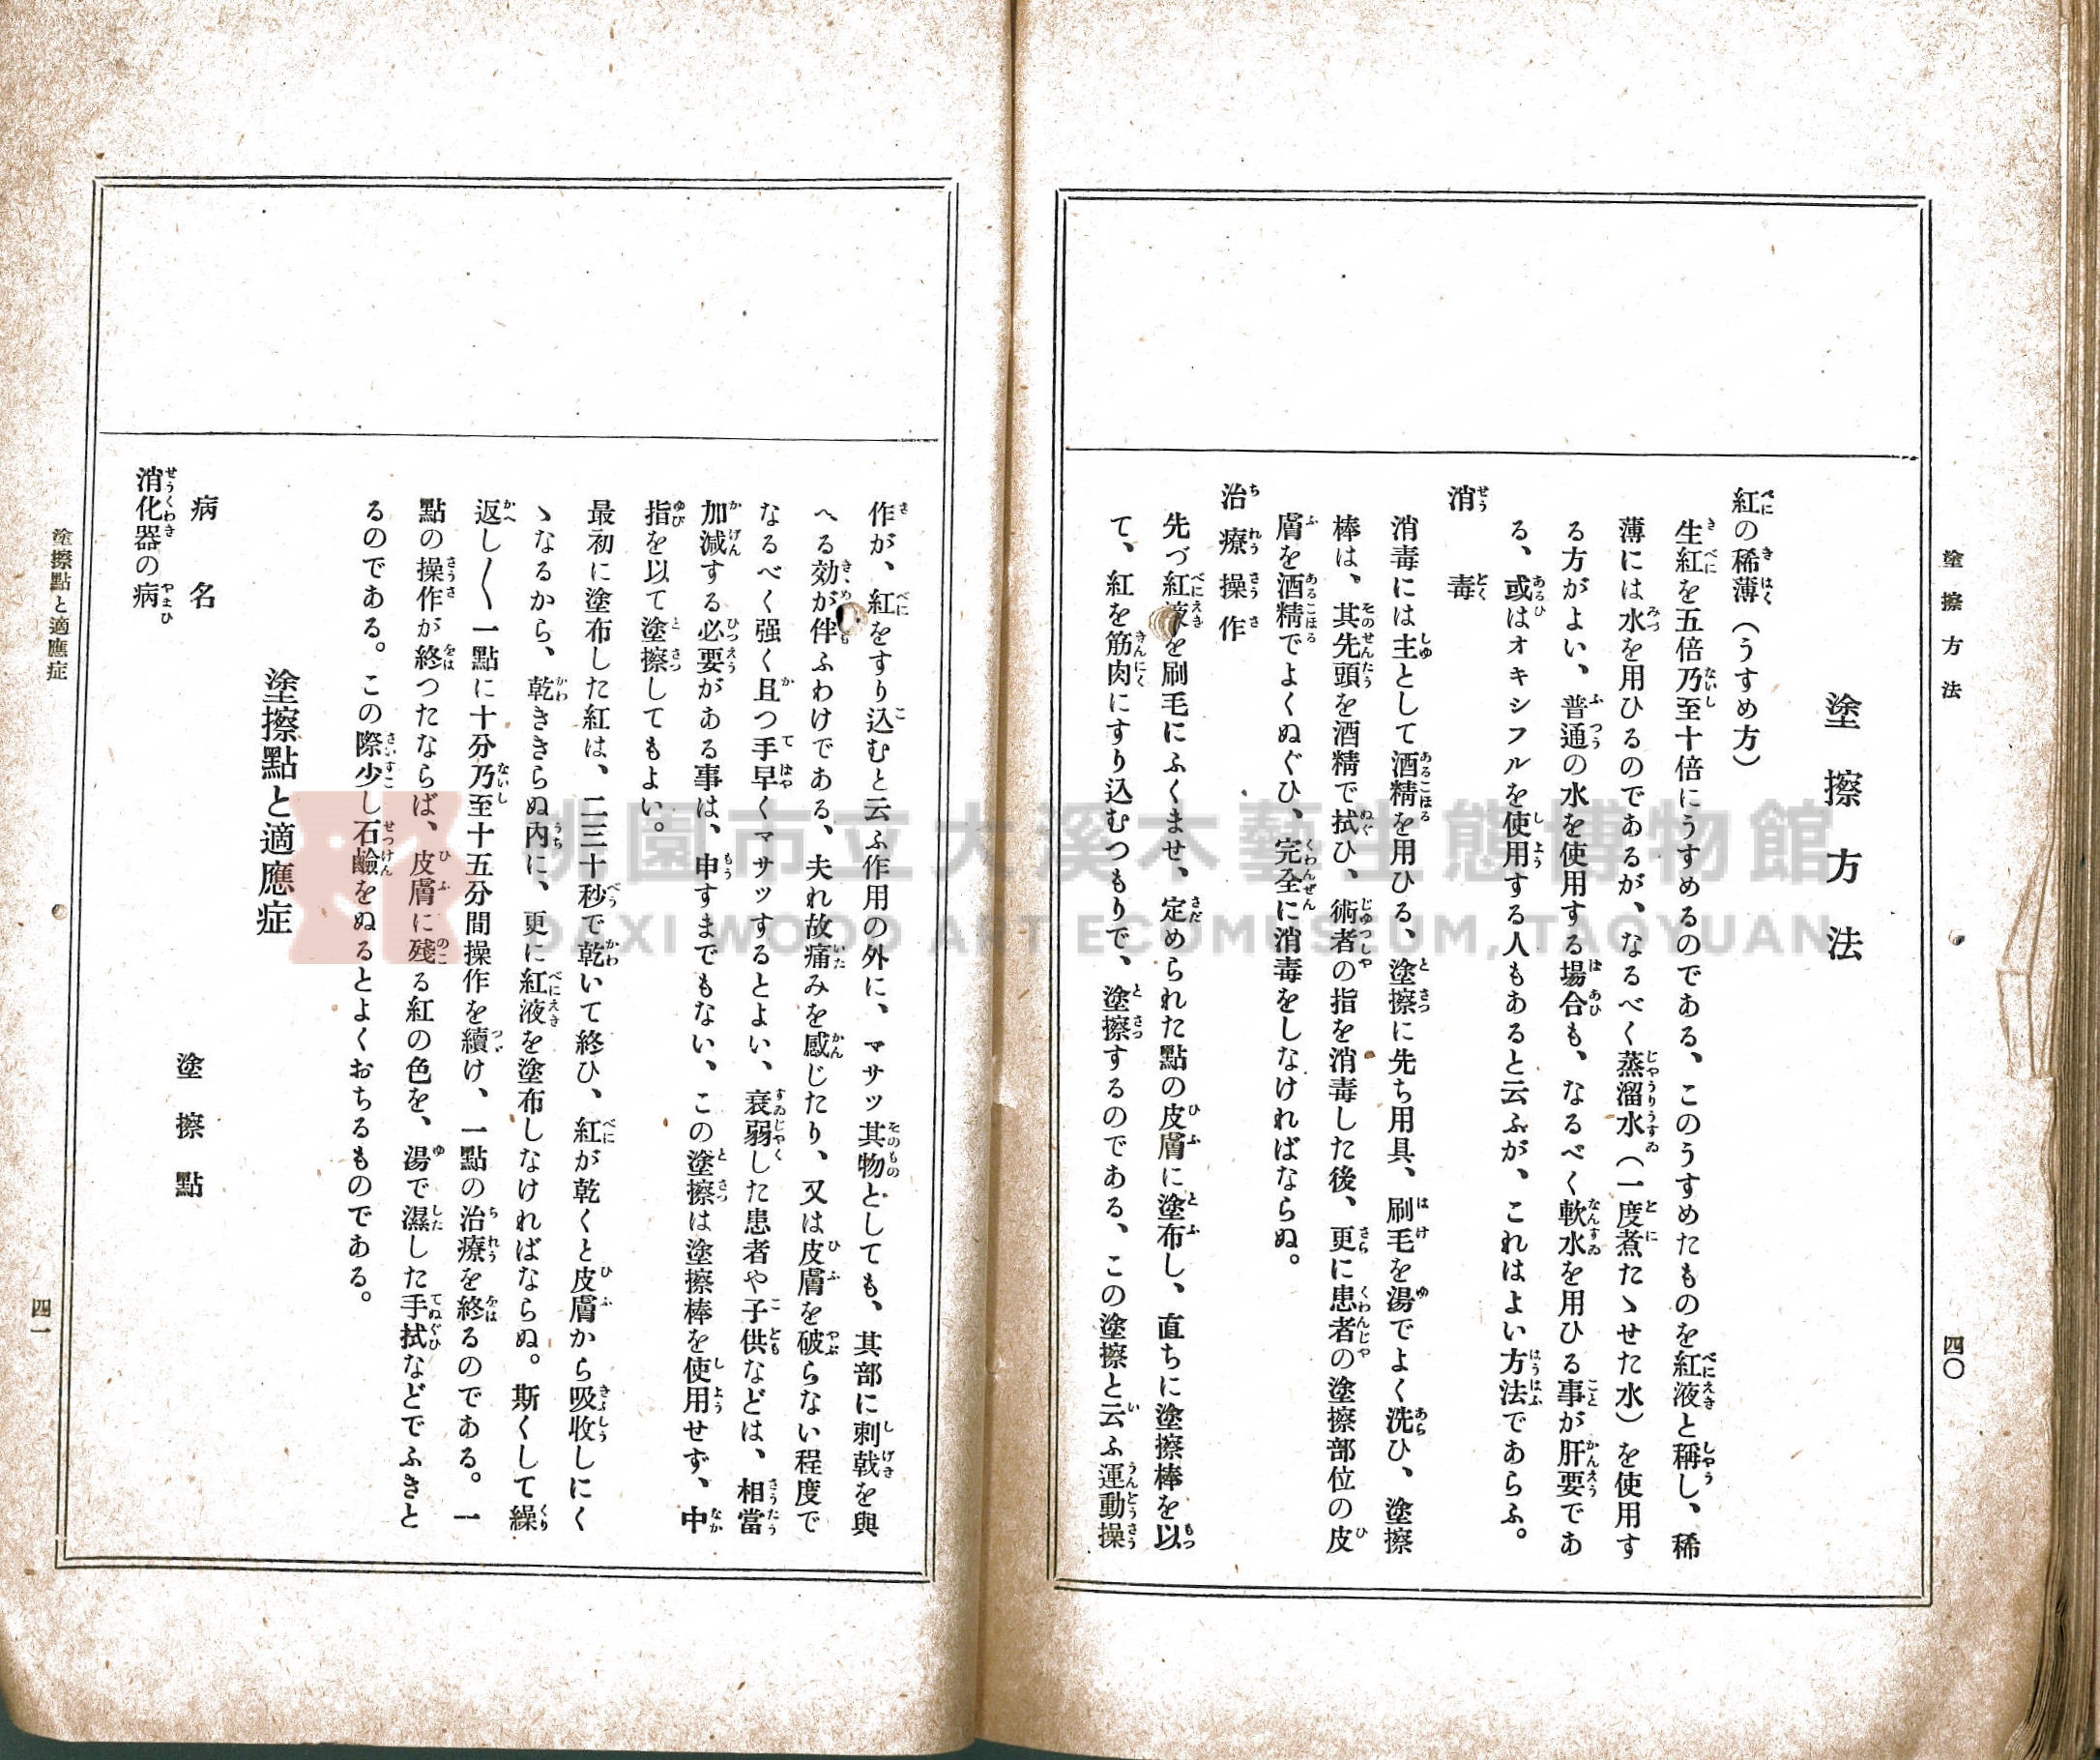 塗擦方法
四〇
塗擦方法
紅の稀薄（うすめ方）
生紅を五倍乃至十倍にうすめるのである、このうすめたものを紅液と稱し、稀
薄には水を用ひるのであるが、なるべく蒸溜水（一度煮たゝせた水）を使用す
る方がよい、普通の水を使用する場合も、なるべく軟水を用ひる事が肝要であ
る、或はオキシフルを使用する人もあると云ふが、これはよい方法であらふ。
消毒
消毒には主として酒精を用ひる、塗擦に先ち用具、刷毛を湯でよく洗ひ、塗擦
棒は、其先頭を酒精で拭ひ、術者の指を消毒した後、更に患者の塗擦部位の皮
膚を酒精でよくぬぐひ、完全に消毒をしなければならぬ。
治療操作
先づ紅液を刷毛にふくませ、定められた點の皮膚に塗布し、直ちに塗擦棒を以
て、紅を筋肉にすり込むつもりで、塗擦するのである、この塗擦と云ふ運動操
作が、紅をすり込むと云ふ作用の外に、マサッ其物としても、其部に刺戟を與
へる効が伴ふわけである、夫れ故痛みを感じたり、又は皮膚を破らない程度で
なるべく强く且つ手早くマサッするとよい、衰弱した患者や子供などは、相當
加減する必要がある事は、申すまでもない、この塗擦は塗擦棒を使用せず、中
指を以て塗擦してもよい。
最初に塗布した紅は、二三十秒で乾いて終ひ、紅が乾くと皮膚から吸收しにく
ゝなるから、乾ききらぬ內に、更に紅液を塗布しなければならぬ。斯くして繰
返し〱一點に十分乃至十五分間操作を續け、一點の治療を終るのである。一
點の操作が終つたならば、皮膚に殘る紅の色を、湯で濕した手拭などでふきと
るのである。この際少し石鹼をぬるとよくおちるものである。
塗擦點と適應症
病名　塗擦點
消化器の病
塗擦點と適應症
四一
桃園市立大溪木藝生態博物館
DAXI WOOD ART ECOMUSEUM, TAOYUAN